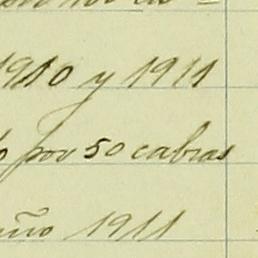 1910 y 1911
por 50 cabras
año 1911